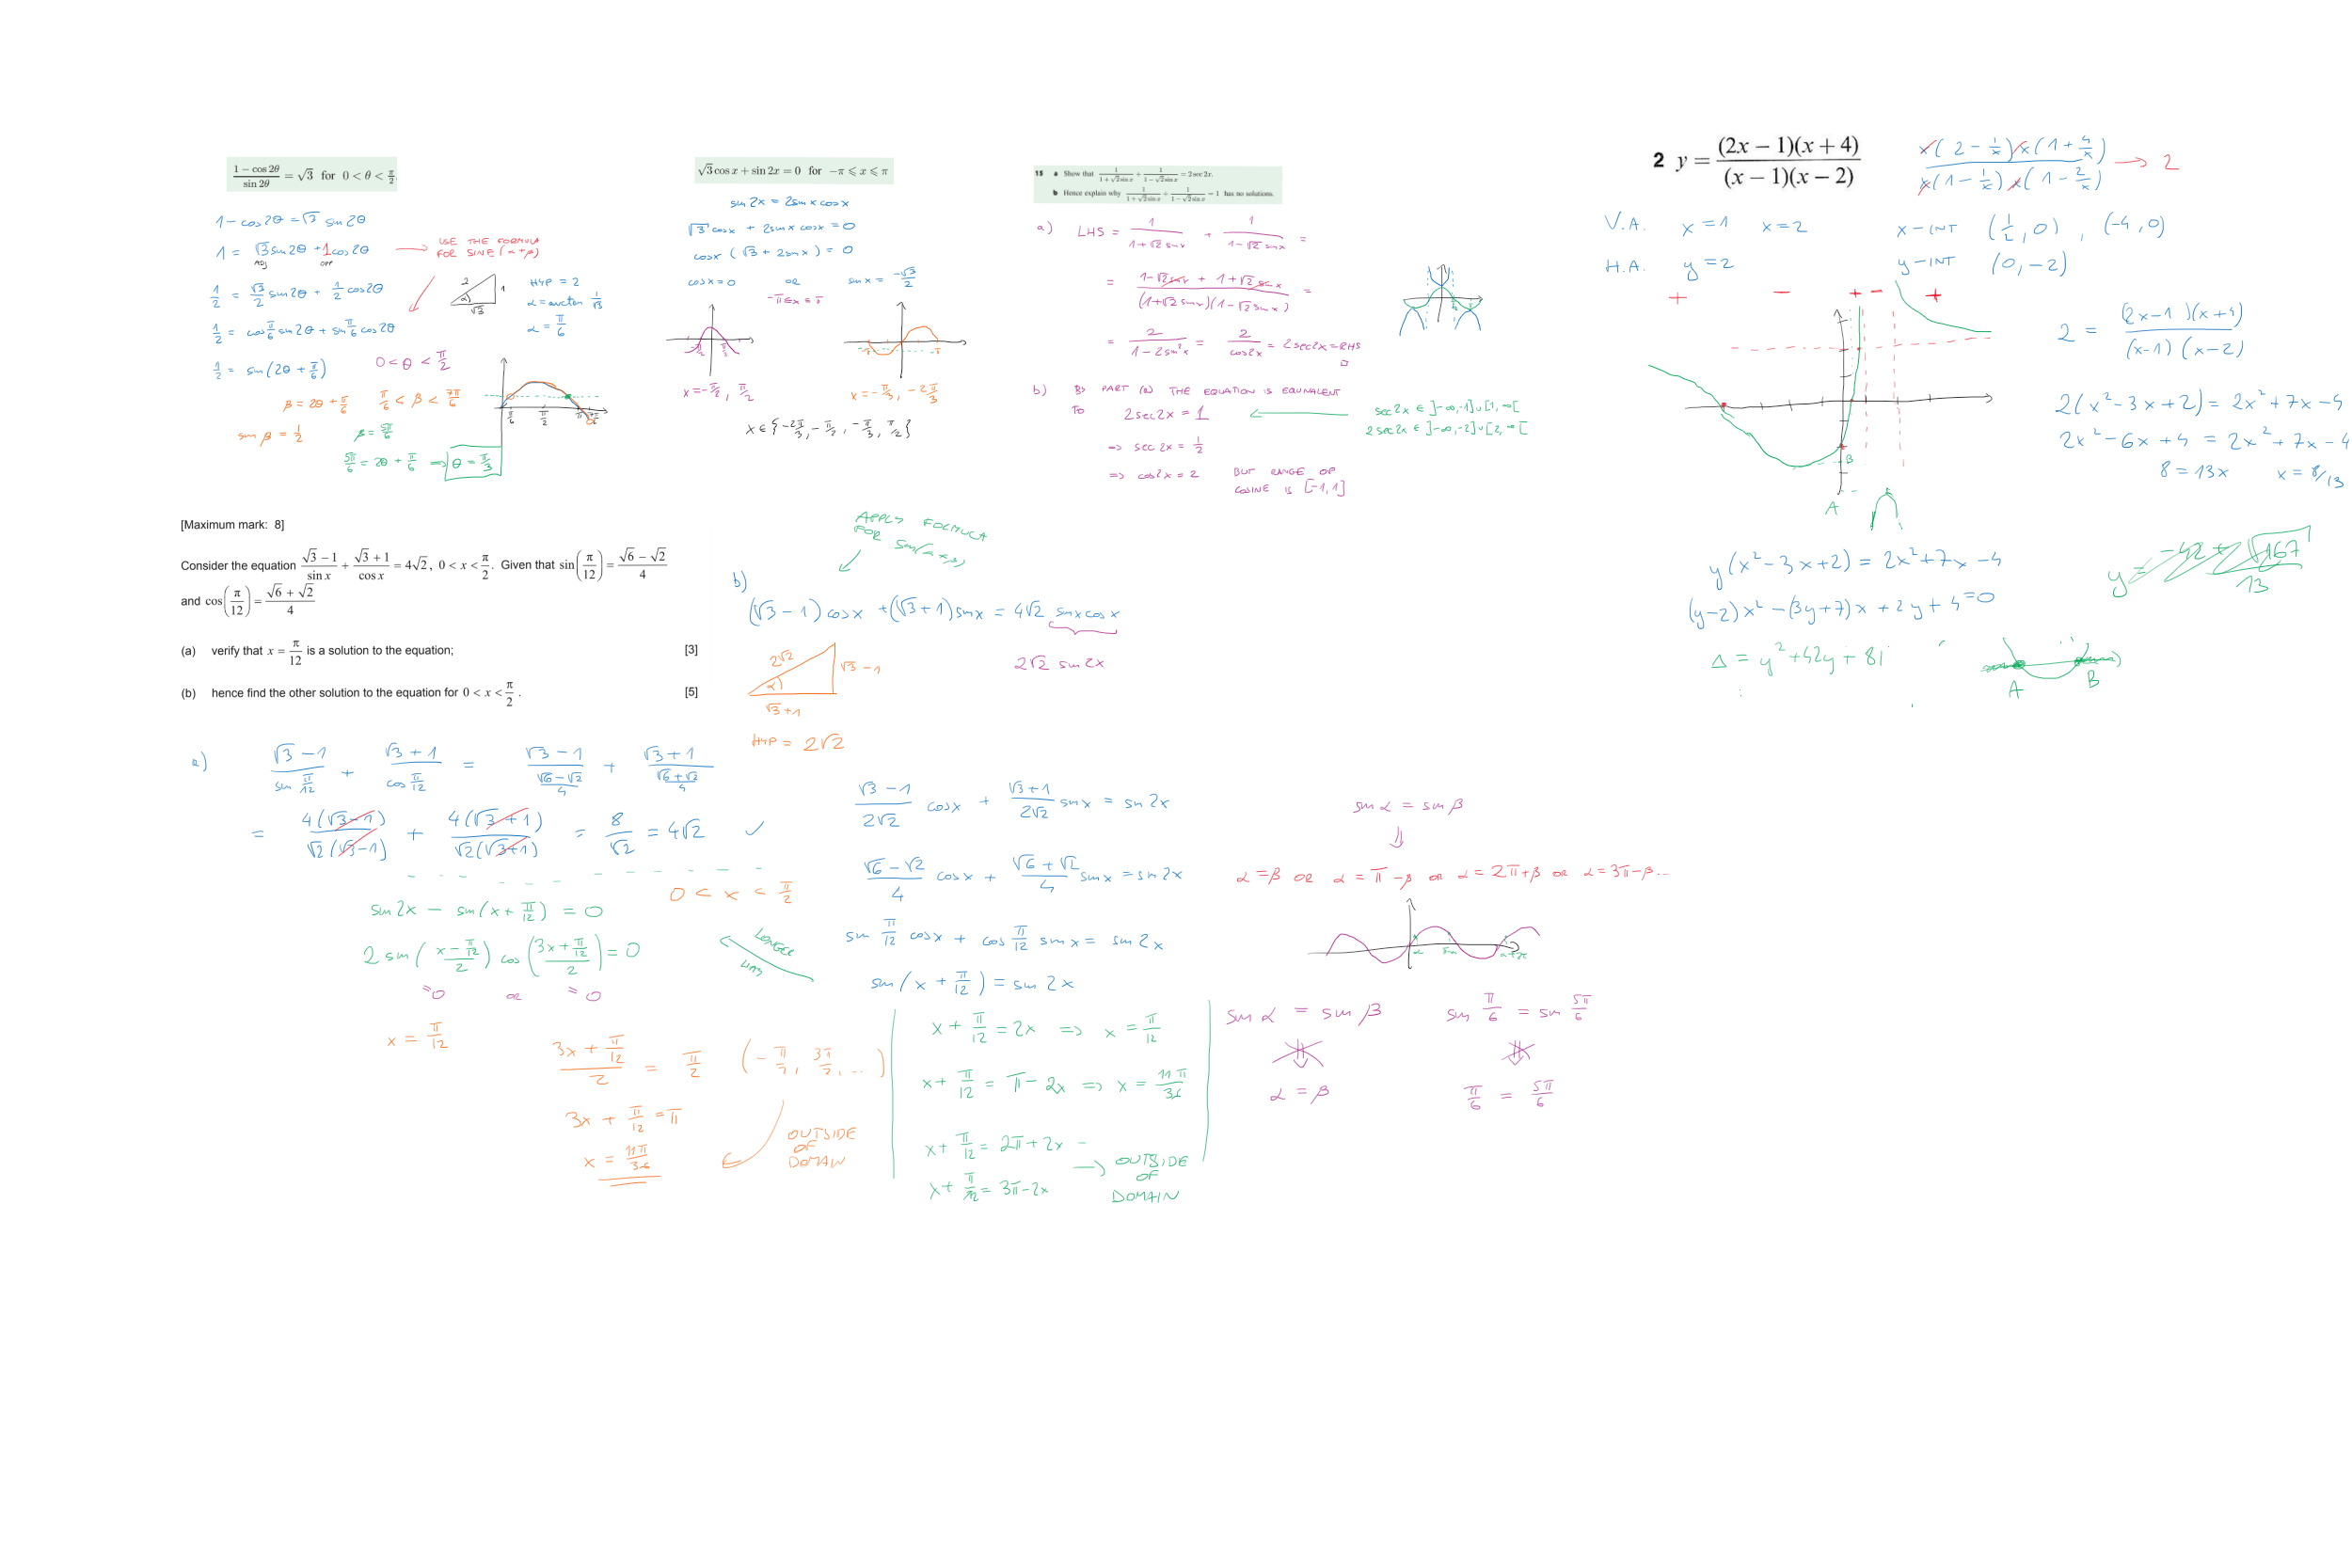 (1 − cos 2θ)/(sin 2θ) = √3 for 0 < θ < π/2.
1 − cos 2θ = √3 sin 2θ
1 = √3 sin 2θ + 1 cos 2θ
ADJ OPP
USE THE FORMULA
FOR SINE (α+β)
1/2 = √3/2 sin 2θ + 1/2 cos 2θ
2 1 α √3
HYP = 2
α = arctan 1/√3
α = π/6
1/2 = cos π/6 sin 2θ + sin π/6 cos 2θ
1/2 = sin(2θ + π/6)
0 < θ < π/2
β = 2θ + π/6
π/6 < β < 7π/6
sin β = 1/2
β = 5π/6
5π/6 = 2θ + π/6 ⇒ θ = π/3
π/6 π/2 π 7π/6
√3 cos x + sin 2x = 0 for −π ⩽ x ⩽ π
sin 2x = 2 sin x cos x
√3 cos x + 2 sin x cos x = 0
cos x (√3 + 2 sin x) = 0
cos x = 0 OR sin x = −√3/2
−π ≤ x ≤ π
x = −π/2, π/2
x = −π/3, −2π/3
x ∈ {−2π/3, −π/2, −π/3, π/2}
15 a Show that 1/(1 + √2 sin x) + 1/(1 − √2 sin x) = 2 sec 2x.
b Hence explain why 1/(1 + √2 sin x) + 1/(1 − √2 sin x) = 1 has no solutions.
a) LHS = 1/(1 + √2 sin x) + 1/(1 − √2 sin x) =
= (1 − √2 sin x + 1 + √2 sin x)/((1 + √2 sin x)(1 − √2 sin x)) =
= 2/(1 − 2 sin² x) = 2/(cos 2x) = 2 sec 2x = RHS □
b) BY PART (a) THE EQUATION IS EQUIVALENT
TO 2 sec 2x = 1
sec 2x ∈ ]−∞, −1] ∪ [1, ∞[
2 sec 2x ∈ ]−∞, −2] ∪ [2, ∞[
⇒ sec 2x = 1/2
⇒ cos 2x = 2 BUT RANGE OF
COSINE IS [−1, 1]
2 y = ((2x − 1)(x + 4))/((x − 1)(x − 2))
(x(2 − 1/x) x(1 + 4/x))/(x(1 − 1/x) x(1 − 2/x)) → 2
V.A. x = 1 x = 2
x−INT (1/2, 0), (−4, 0)
H.A. y = 2
y−INT (0, −2)
+ − + − +
B
A
2 = ((2x−1)(x+4))/((x−1)(x−2))
2(x² − 3x + 2) = 2x² + 7x − 4
2x² − 6x + 4 = 2x² + 7x − 4
8 = 13x x = 8/13
y(x² − 3x + 2) = 2x² + 7x − 4
(y−2)x² − (3y+7)x + 2y + 4 = 0
Δ = y² + 42y + 81
A B
[Maximum mark: 8]
Consider the equation (√3 − 1)/(sin x) + (√3 + 1)/(cos x) = 4√2, 0 < x < π/2. Given that sin(π/12) = (√6 − √2)/4
and cos(π/12) = (√6 + √2)/4
(a) verify that x = π/12 is a solution to the equation; [3]
(b) hence find the other solution to the equation for 0 < x < π/2. [5]
a) (√3 − 1)/(sin π/12) + (√3 + 1)/(cos π/12) = (√3 − 1)/((√6−√2)/4) + (√3 + 1)/((√6+√2)/4)
= 4(√3−1)/(√2(√3−1)) + 4(√3+1)/(√2(√3+1)) = 8/√2 = 4√2 ✓
APPLY FORMULA
FOR sin(α±β)
b)
(√3 − 1) cos x + (√3 + 1) sin x = 4√2 sin x cos x
2√2 sin 2x
2√2 √3 − 1 α √3 + 1
HYP = 2√2
(√3 − 1)/(2√2) cos x + (√3 + 1)/(2√2) sin x = sin 2x
(√6 − √2)/4 cos x + (√6 + √2)/4 sin x = sin 2x
sin π/12 cos x + cos π/12 sin x = sin 2x
sin(x + π/12) = sin 2x
x + π/12 = 2x ⇒ x = π/12
x + π/12 = π − 2x ⇒ x = 11π/36
x + π/12 = 2π + 2x
x + π/12 = 3π − 2x
→ OUTSIDE
OF
DOMAIN
LONGER
WAY
0 < x < π/2
sin 2x − sin(x + π/12) = 0
2 sin((x − π/12)/2) cos((3x + π/12)/2) = 0
= 0 OR = 0
x = π/12
(3x + π/12)/2 = π/2 (−π/2, 3π/2, ...)
3x + π/12 = π
x = 11π/36
OUTSIDE
OF
DOMAIN
sin α = sin β
⇓
α = β OR α = π − β OR α = 2π + β OR α = 3π − β ...
sin α = sin β
α = β
sin π/6 = sin 5π/6
π/6 = 5π/6